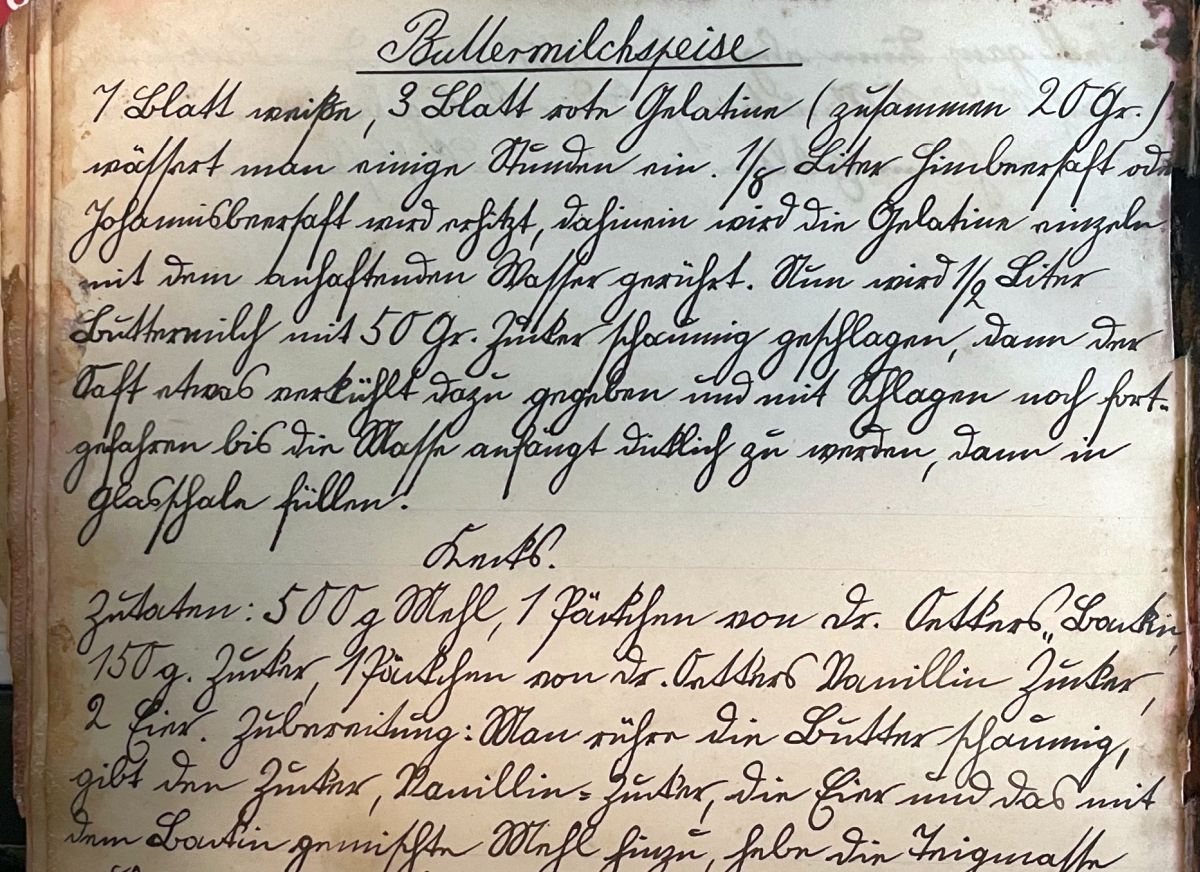 Buttermilchspeise
7 Blatt weiße, 3 Blatt rote Gelatine (zusammen 20 Gr.)
wässert man einige Stunden ein. 1/8 Liter Himbeersaft ode
Johannisbeersaft wird erhitzt, dahinein wird die Gelatine einzeln
mit dem anhaftenden Wasser gerührt. Nun wird 1/2 Liter
Buttermilch mit 50 Gr. Zucker schaumig geschlagen, dann der
Saft etwas verkühlt dazu gegeben und mit Schlagen noch fort=
gefahren bis die Masse anfängt dicklich zu werden, dann in
Glasschale füllen.
Kecks.
Zutaten: 500 g Mehl, 1 Päckchen von Dr. Oetkers „Backin,
150 g. Zucker, 1 Päckchen von Dr. Oetkers Vanillin Zucker,
2 Eier. Zubereitung: Man rühre die Butter schaumig,
gibt den Zucker, Vanillin=Zucker, die Eier und das mit
dem Backin gemischte Mehl hinzu, hebe die Teigmasse